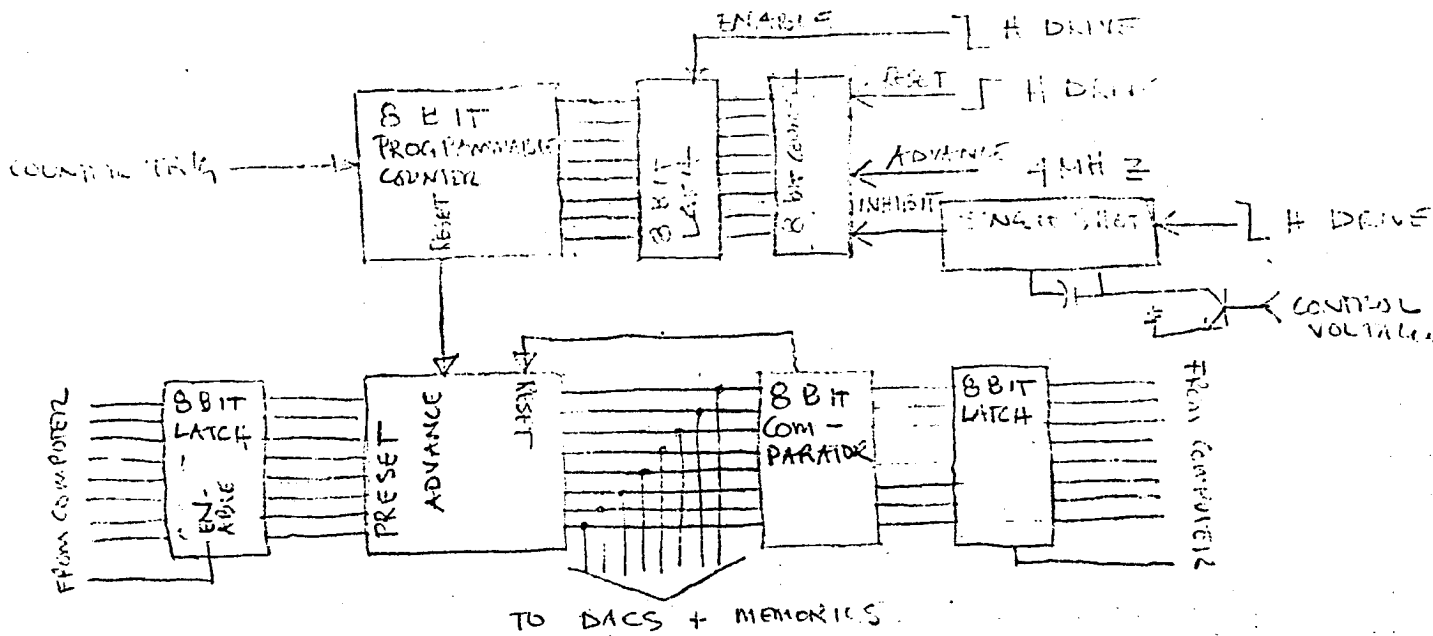 ENABLE
H DRIVE
RESET
H DRIVE
8 BIT
PROGRAMMABLE
COUNTER
RESET
8 BIT
LATCH
8 BIT COUNTER
COUNTER TRIG
ADVANCE
4 MHZ
INHIBIT
SINGLE SHOT
H DRIVE
CONTROL
VOLTAGE
FROM COMPUTER
8 BIT
LATCH
EN-
ABLE
PRESET
ADVANCE
RESET
8 BIT
COM-
PARATOR
8 BIT
LATCH
FROM COMPUTER
TO DACS + MEMORIES